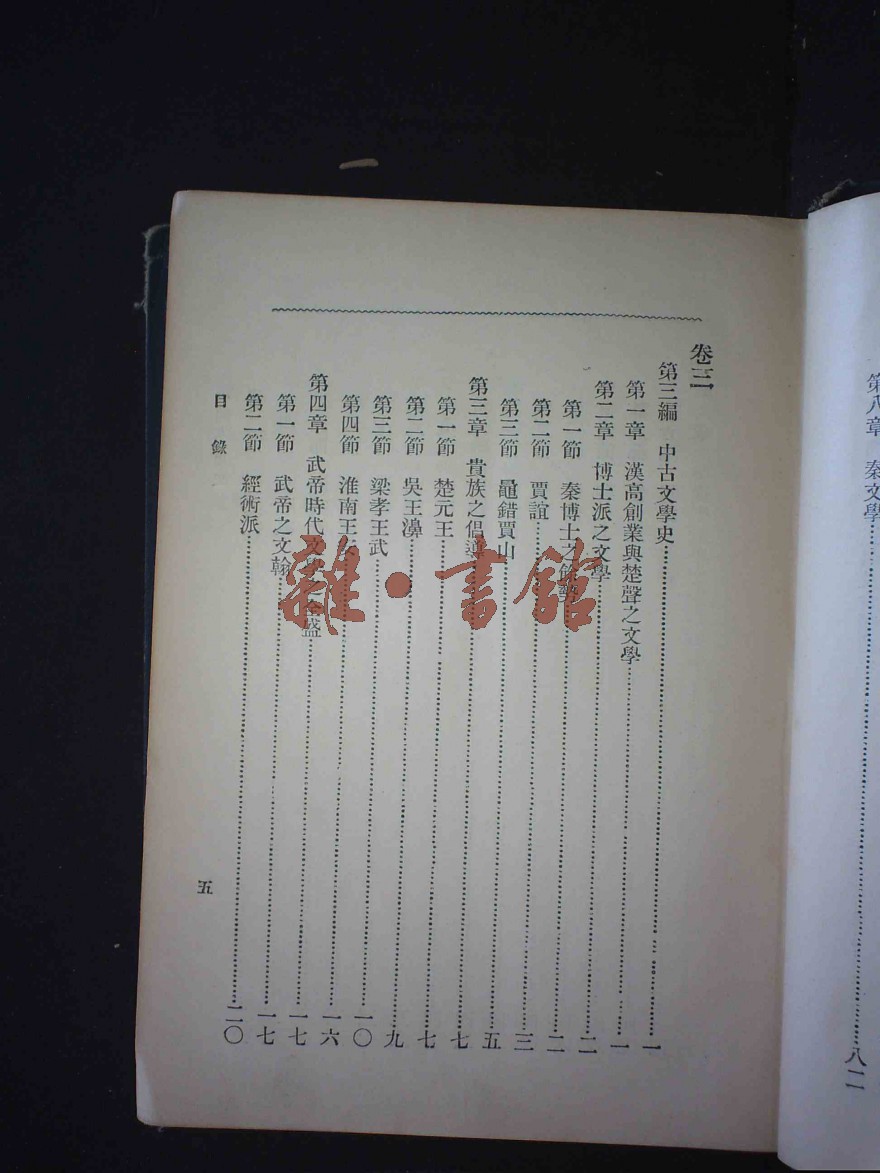 第八章 秦文學……八二
卷三
第三編 中古文學史……一
第一章 漢高創業與楚聲之文學……一
第二章 博士派之文學……二
第一節 秦博士之餘藝……二
第二節 賈誼……三
第三節 鼂錯賈山……五
第三章 貴族之倡導……七
第一節 楚元王……七
第二節 吳王濞……九
第三節 梁孝王武……一〇
第四節 淮南王……一六
第四章 武帝時代文學之全盛……一七
第一節 武帝之文翰……一七
第二節 經術派……二〇
目錄
五
雜·書館